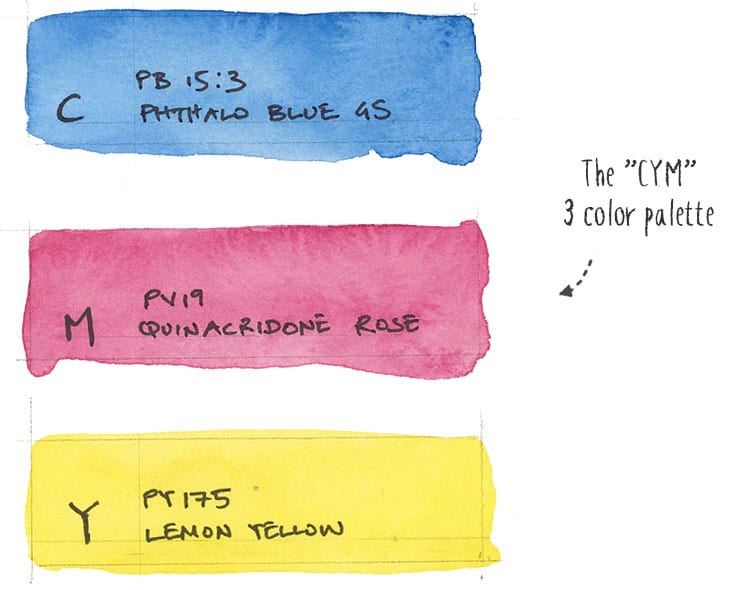 C
PB 15:3
PHTHALO BLUE GS
The "CYM"
3 color palette
M
PV19
QUINACRIDONE ROSE
Y
PY175
LEMON YELLOW